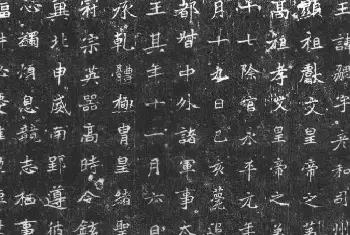 王諱勰字彦和司州
顯祖獻文皇帝之第
高祖孝文皇帝之弟
十七除官永平元年
月十九日己亥薨追
都督中外諸軍事太
王其年十一月六日
承乾體極胄皇緒聖
宗英器高時令鉉
翼北申威南郢遵彼
心蠲消息競志栖事